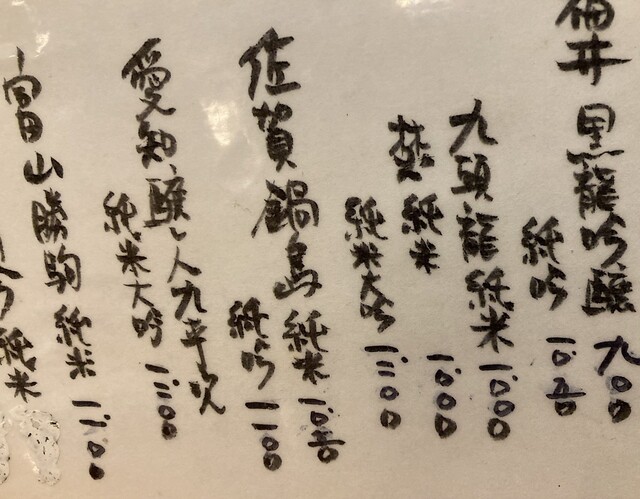 福井 黒龍吟醸 九〇〇
純吟 一、〇五〇
九頭龍純米 一、〇〇〇
梵 純米 一、〇〇〇
純米大吟 一、三〇〇
佐賀 鍋島 純米 一、〇五〇
純吟 一、一〇〇
愛知 醸し人九平次
純米大吟 一、三〇〇
富山 勝駒 純米 一、一〇〇
純米